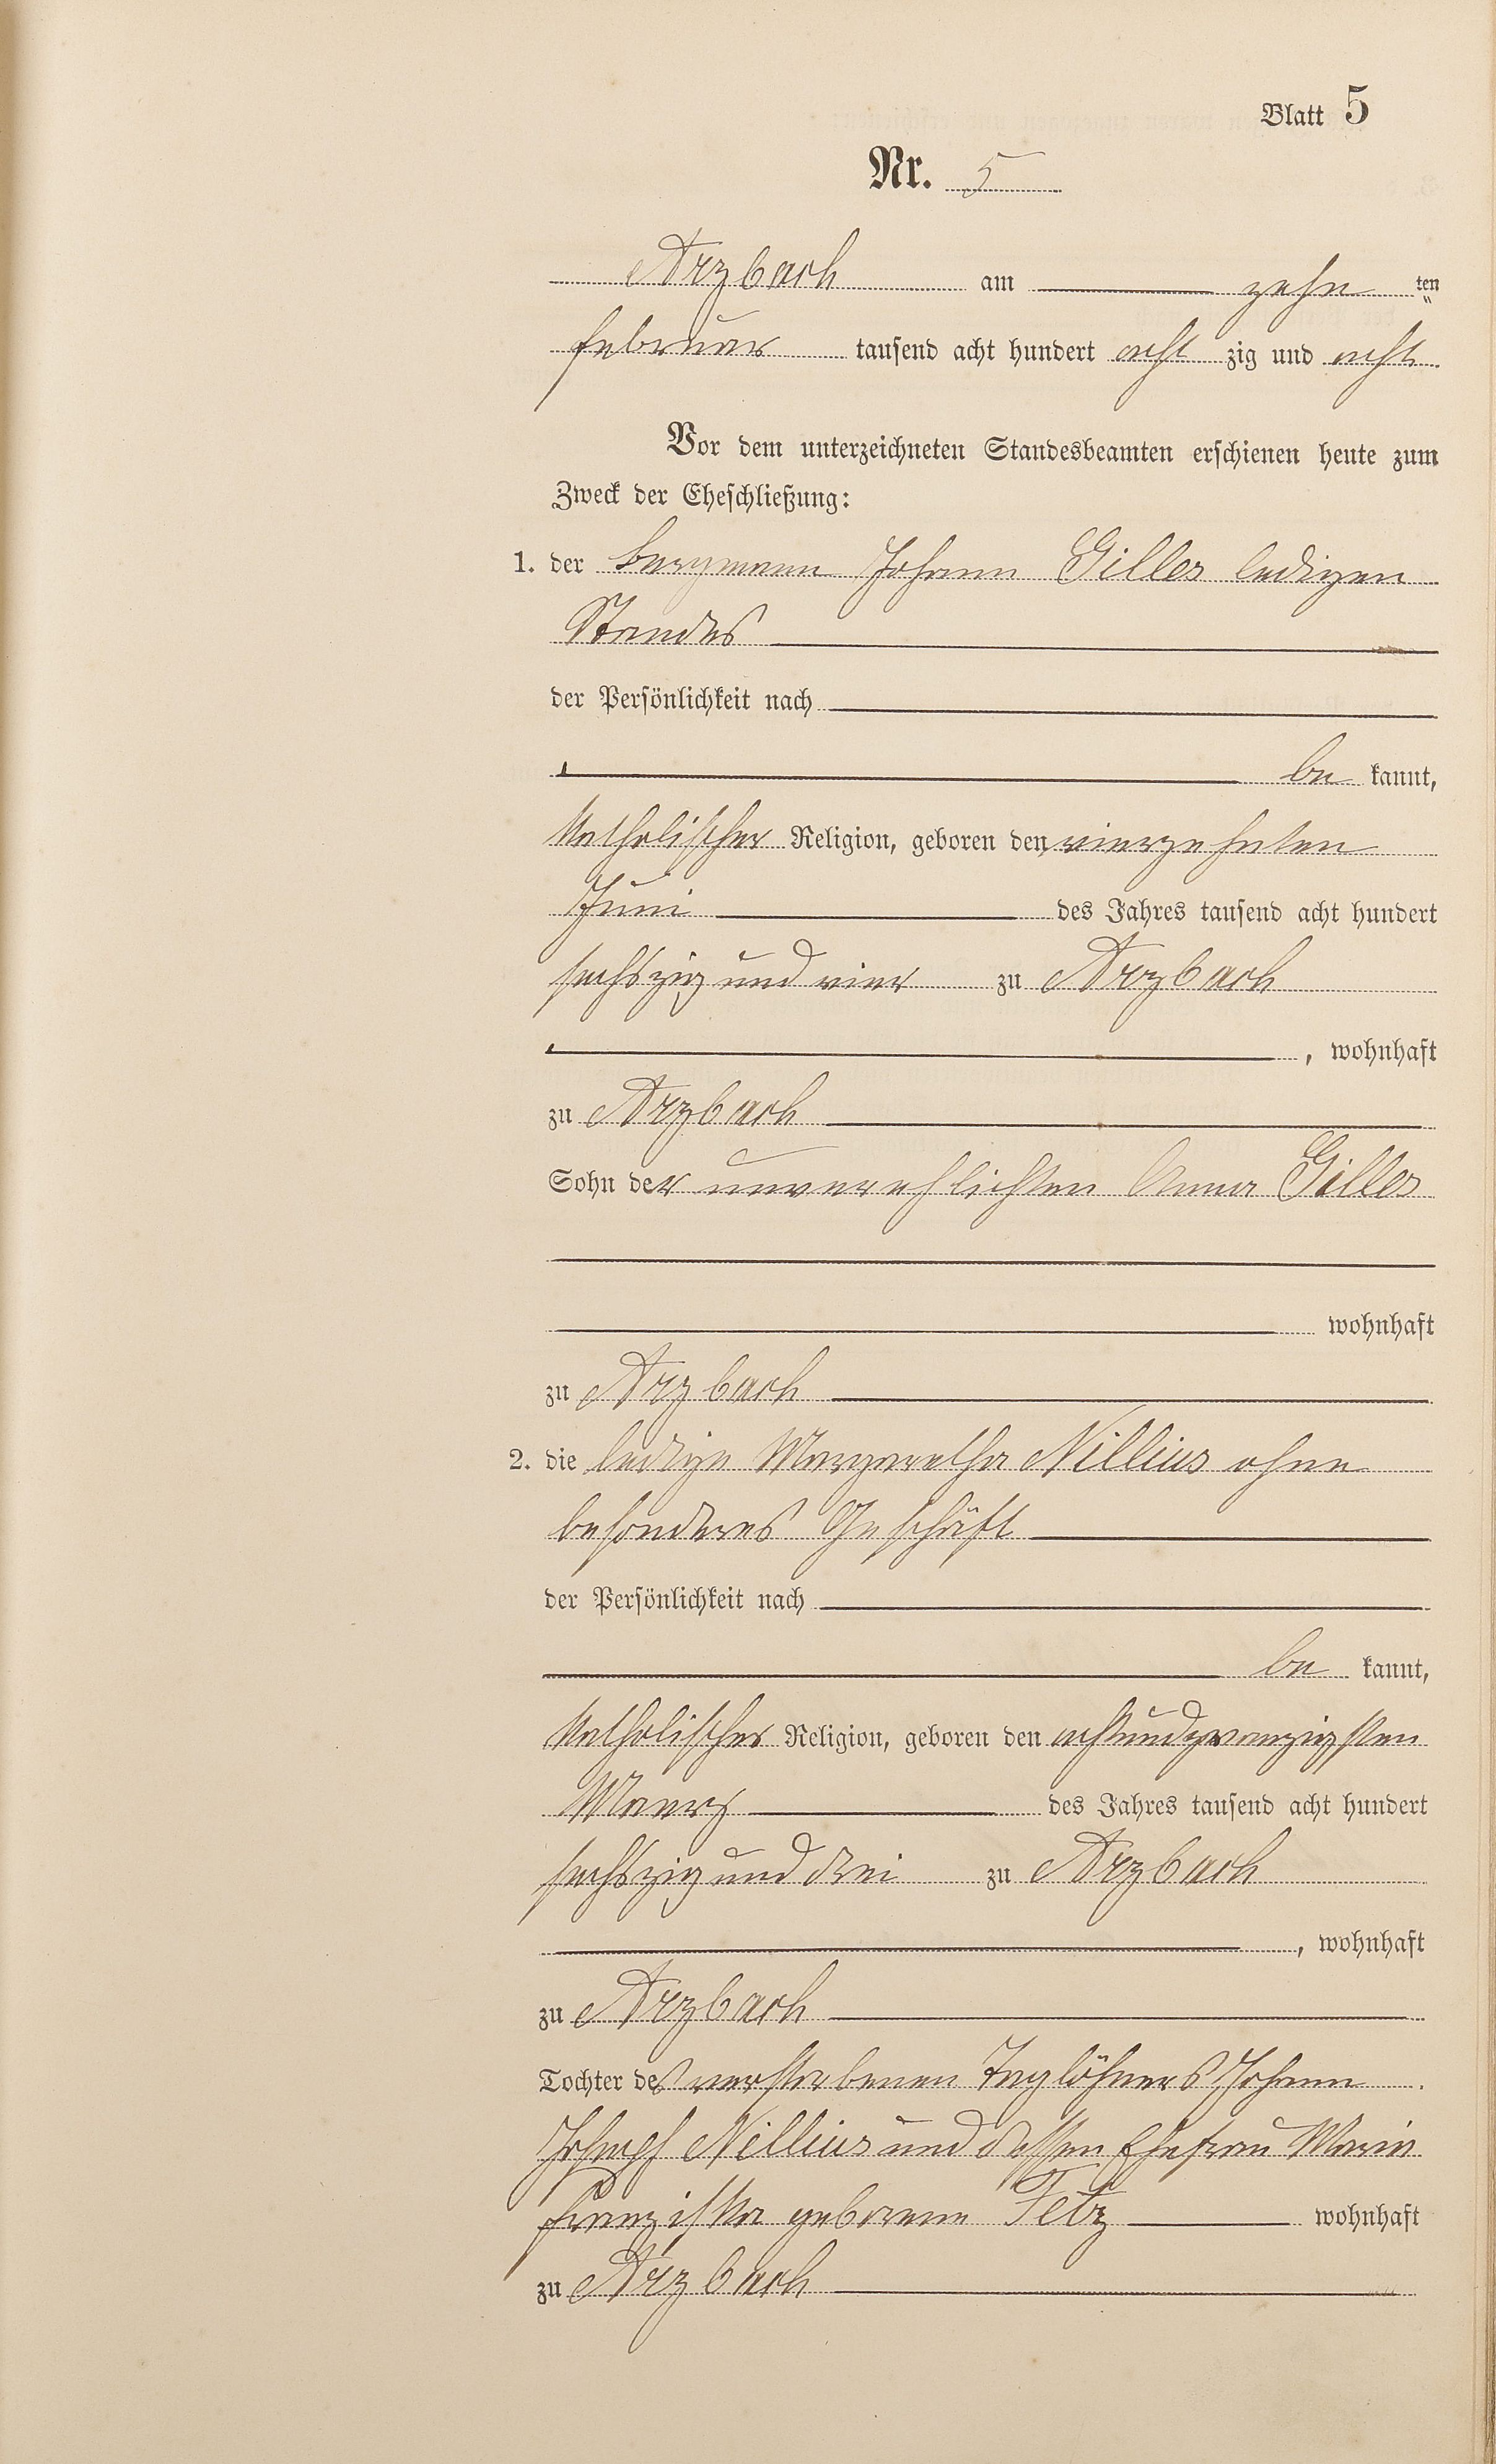 Blatt 5
Nr. 5
Arzbach am zehn ten
Februar tausend acht hundert acht zig und acht
Vor dem unterzeichneten Standesbeamten erschienen heute zum
Zweck der Eheschließung:
1. der Bergmann Johann Gilles ledigen
Standes
der Persönlichkeit nach
be kannt,
katholischer Religion, geboren den vierzehnten
Juni des Jahres tausend acht hundert
sechszig und vier zu Arzbach
, wohnhaft
zu Arzbach
Sohn der unverehlichten Anna Gilles
wohnhaft
zu Arzbach
2. die ledige Margaretha Nillius ohne
besonderes Geschäft
der Persönlichkeit nach
be kannt,
katholischer Religion, geboren den achtundzwanzigsten
Maerz des Jahres tausend acht hundert
sechszig und drei zu Arzbach
, wohnhaft
zu Arzbach
Tochter des verstorbenen Taglöhners Johann
Joseph Nillius und dessen Ehefrau Maria
Franziska geborene Fetz wohnhaft
zu Arzbach